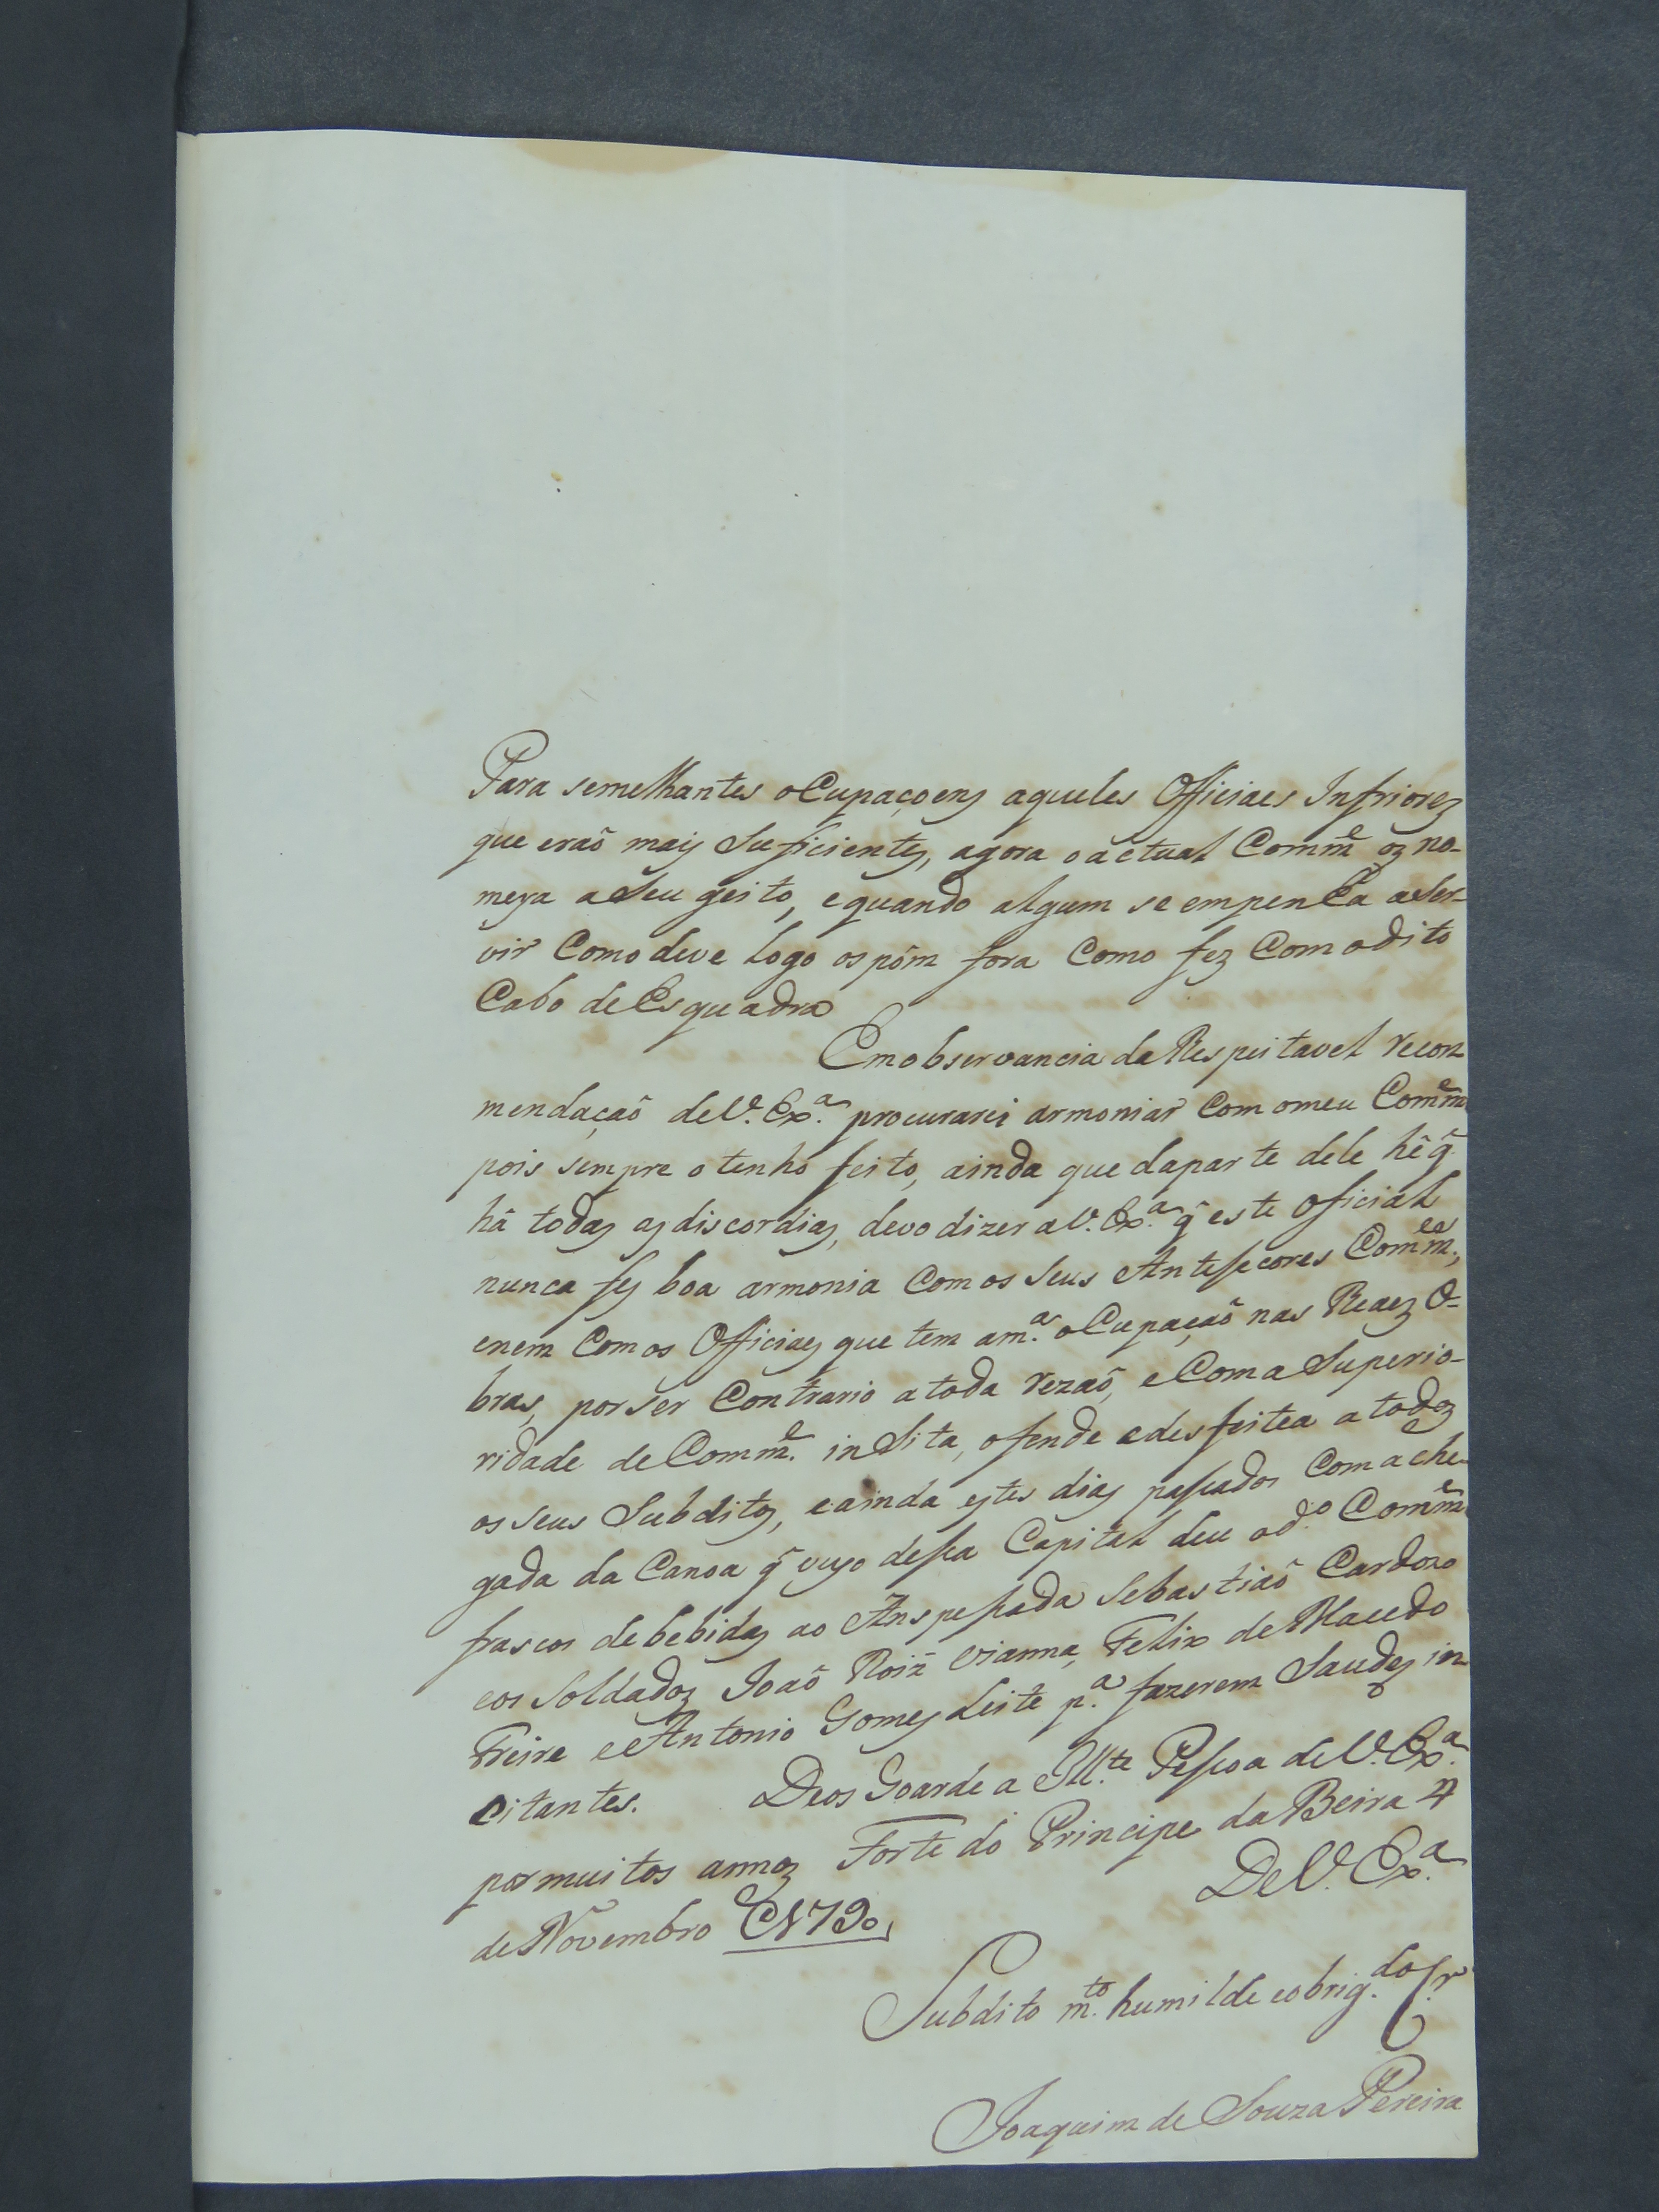 Para semelhantes oCupaçoens aqueles Officiaes Infriores
que eraõ mais Suficientes, agora o actual Comm.e os no-
meya a Seu geito, e quando algum se empenha a Ser-
vir Como deve logo os pôm fora Como fez Com o dito
Cabo de Esquadra
Em observancia da Respeitavel recom
mendaçaõ de V. Ex.a procurarei armoniar Com o meu Comm.e
pois sempre o tenho feito, ainda que da parte dele hê q̃
hâ todas as discordias, devo dizer a V. Ex.a q̃ este oficial
nunca fes boa armonia Com os Seus Antesecores Comm.es,
e nem Com os Officiaes que tem a m.a oCupaçaõ nas Reaes O-
bras, por ser Contrario a toda rezaõ, e Com a Superio-
ridade de Comm.e inSita, ofende e desfeitea a todos
os seus Subditos, e ainda estes dias passados Com a che-
gada da Canoa q̃ veyo dessa Capital deu o d.o Comm.e
frascos de bebidas ao Anspessada Sebastiaõ Cardozo
e os Soldados Joaõ Roiz Vianna, Felix de Macedo
Freire e Antonio Gomes Leite p.a fazerem Saudes in
citantes. Deos Goarde a Ill.te Pessoa de V. Ex.a
por muitos annos Forte do Principe da Beira 4
de Novembro de 1790,
De V. Ex.a
Subdito m.to humilde e obrig.do Cr.
Joaquim de Souza Pereira